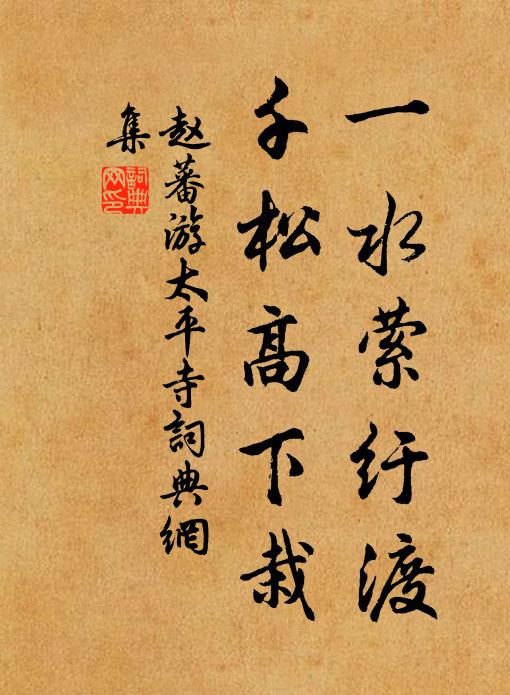 一水萦纡渡
千松高下栽
赵蕃游太平寺詞典網
集
詞典
网印